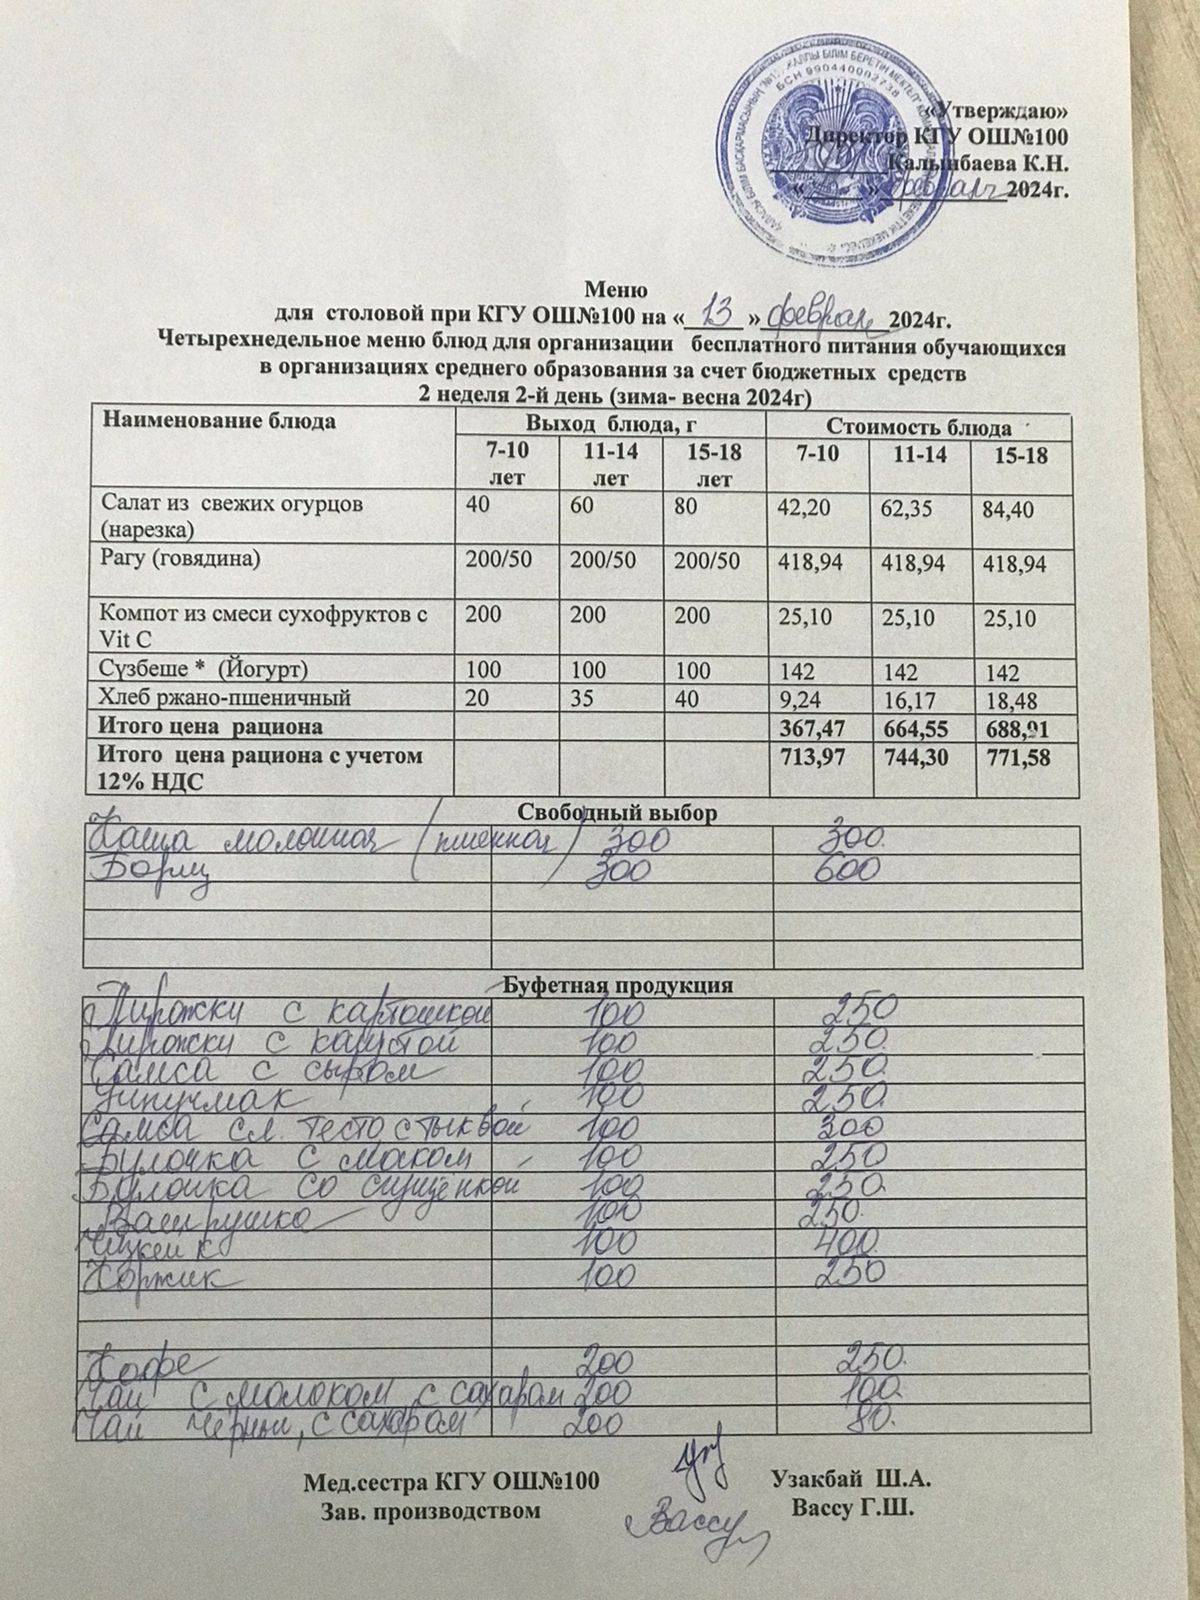 ЖАЛПЫ БІЛІМ БЕРЕТІН МЕКТЕП
БСН 990440002738
«Утверждаю»
Директор КГУ ОШ№100
Калынбаева К.Н.
« » февраль 2024г.
Меню
для столовой при КГУ ОШ№100 на « 13 » февраль 2024г.
Четырехнедельное меню блюд для организации бесплатного питания обучающихся
в организациях среднего образования за счет бюджетных средств
2 неделя 2-й день (зима- весна 2024г)
Наименование блюда Выход блюда, г Стоимость блюда
7-10 лет 11-14 лет 15-18 лет 7-10 11-14 15-18
Салат из свежих огурцов (нарезка) 40 60 80 42,20 62,35 84,40
Рагу (говядина) 200/50 200/50 200/50 418,94 418,94 418,94
Компот из смеси сухофруктов с Vit C 200 200 200 25,10 25,10 25,10
Сүзбеше * (Йогурт) 100 100 100 142 142 142
Хлеб ржано-пшеничный 20 35 40 9,24 16,17 18,48
Итого цена рациона 367,47 664,55 688,91
Итого цена рациона с учетом 12% НДС 713,97 744,30 771,58
Свободный выбор
Каша молочная (пшенная) 300 300
Борщ 300 600
Буфетная продукция
Пирожки с картошкой 100 250
Пирожки с капустой 100 250
Самса с сыром 100 250
Учпучмак 100 250
Самса сл. тесто с тыквой 100 300
Булочка с маком 100 250
Булочка со сгущёнкой 100 250
Ватрушка 100 250
Чизкейк 100 400
Коржик 100 250
Кофе 200 250
Чай с молоком с сахаром 200 100
Чай черный, с сахаром 200 80
Мед.сестра КГУ ОШ№100 Узакбай Ш.А.
Зав. производством Вассу Вассу Г.Ш.